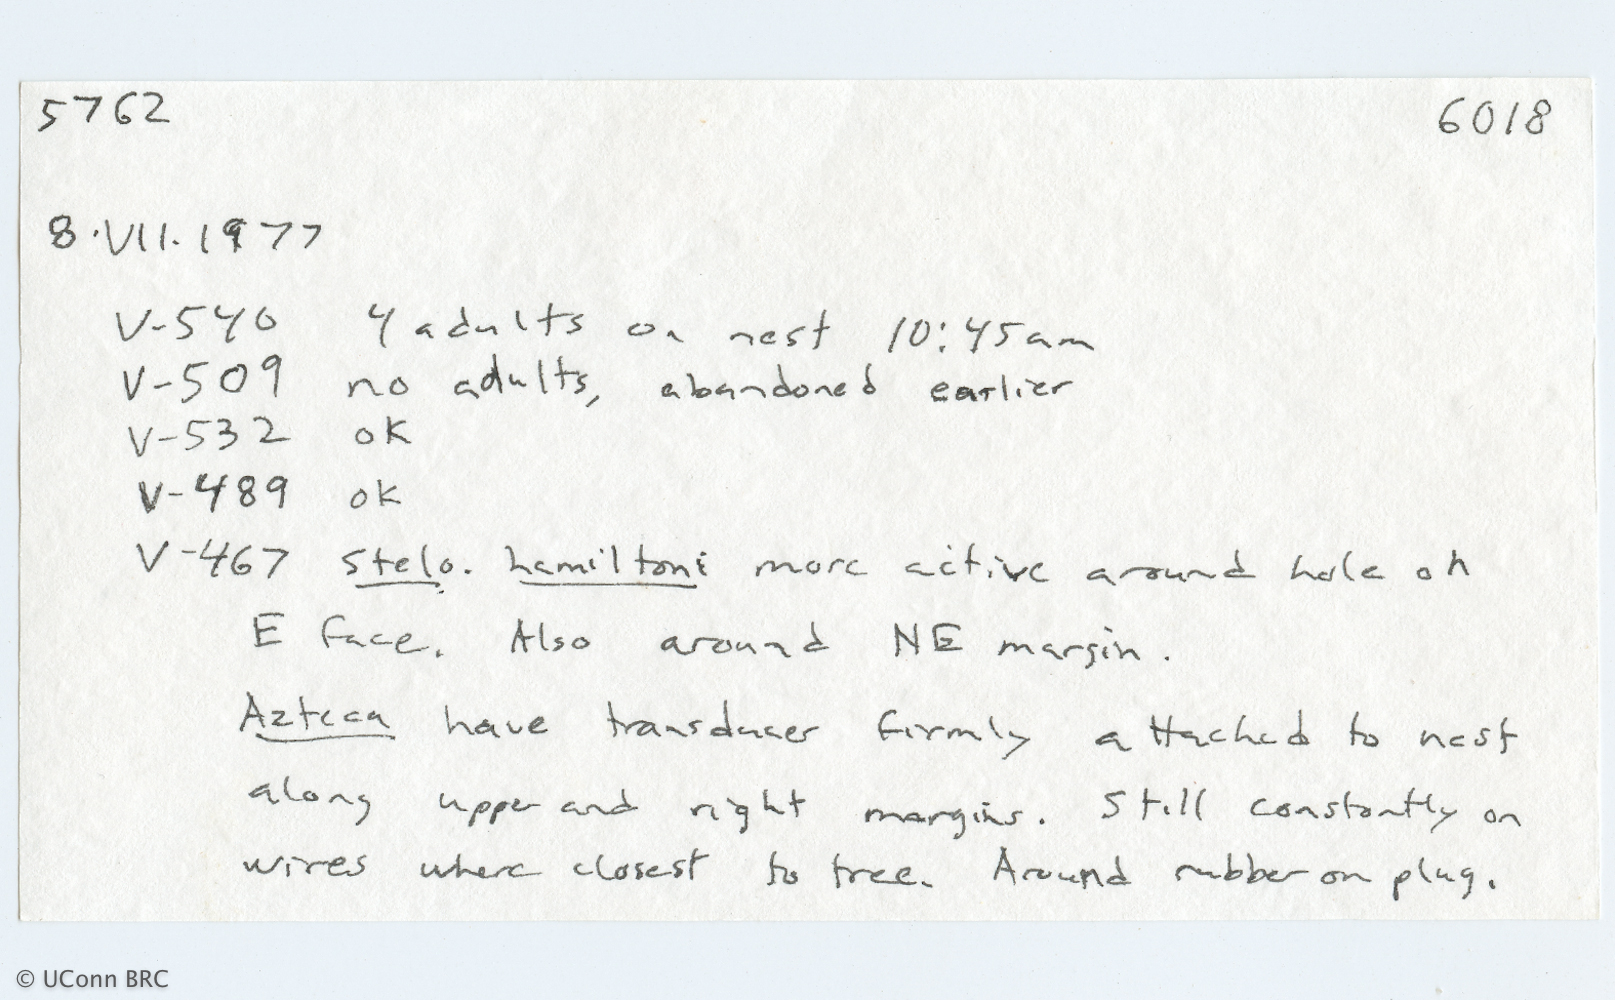 5762 6018
8.VII.1977
V-540 4 adults on nest 10:45am
V-509 no adults, abandoned earlier
V-532 ok
V-489 ok
V-467 Stelo. hamiltoni more active around hole on
E face. Also around NE margin.
Azteca have transducer firmly attached to nest
along upper and right margins. Still constantly on
wires where closest to tree. Around rubber on plug.
© UConn BRC